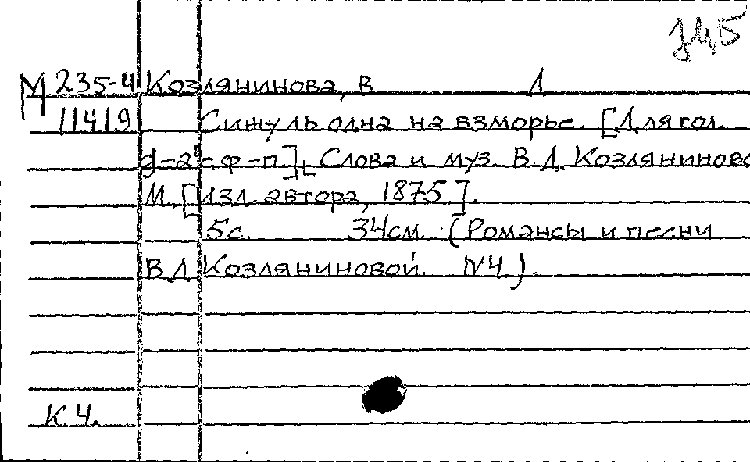 745
М 235-4 Козлянинова, В Д
11419 Сижу ль одна на взморье. [Для гол.
d-a² с ф-п.], Слова и муз. В.Д. Козляниново
М. [Изд. автора, 1875].
5с. 34см. (Романсы и песни
В.Д. Козляниновой. №4.)
К.Ч.